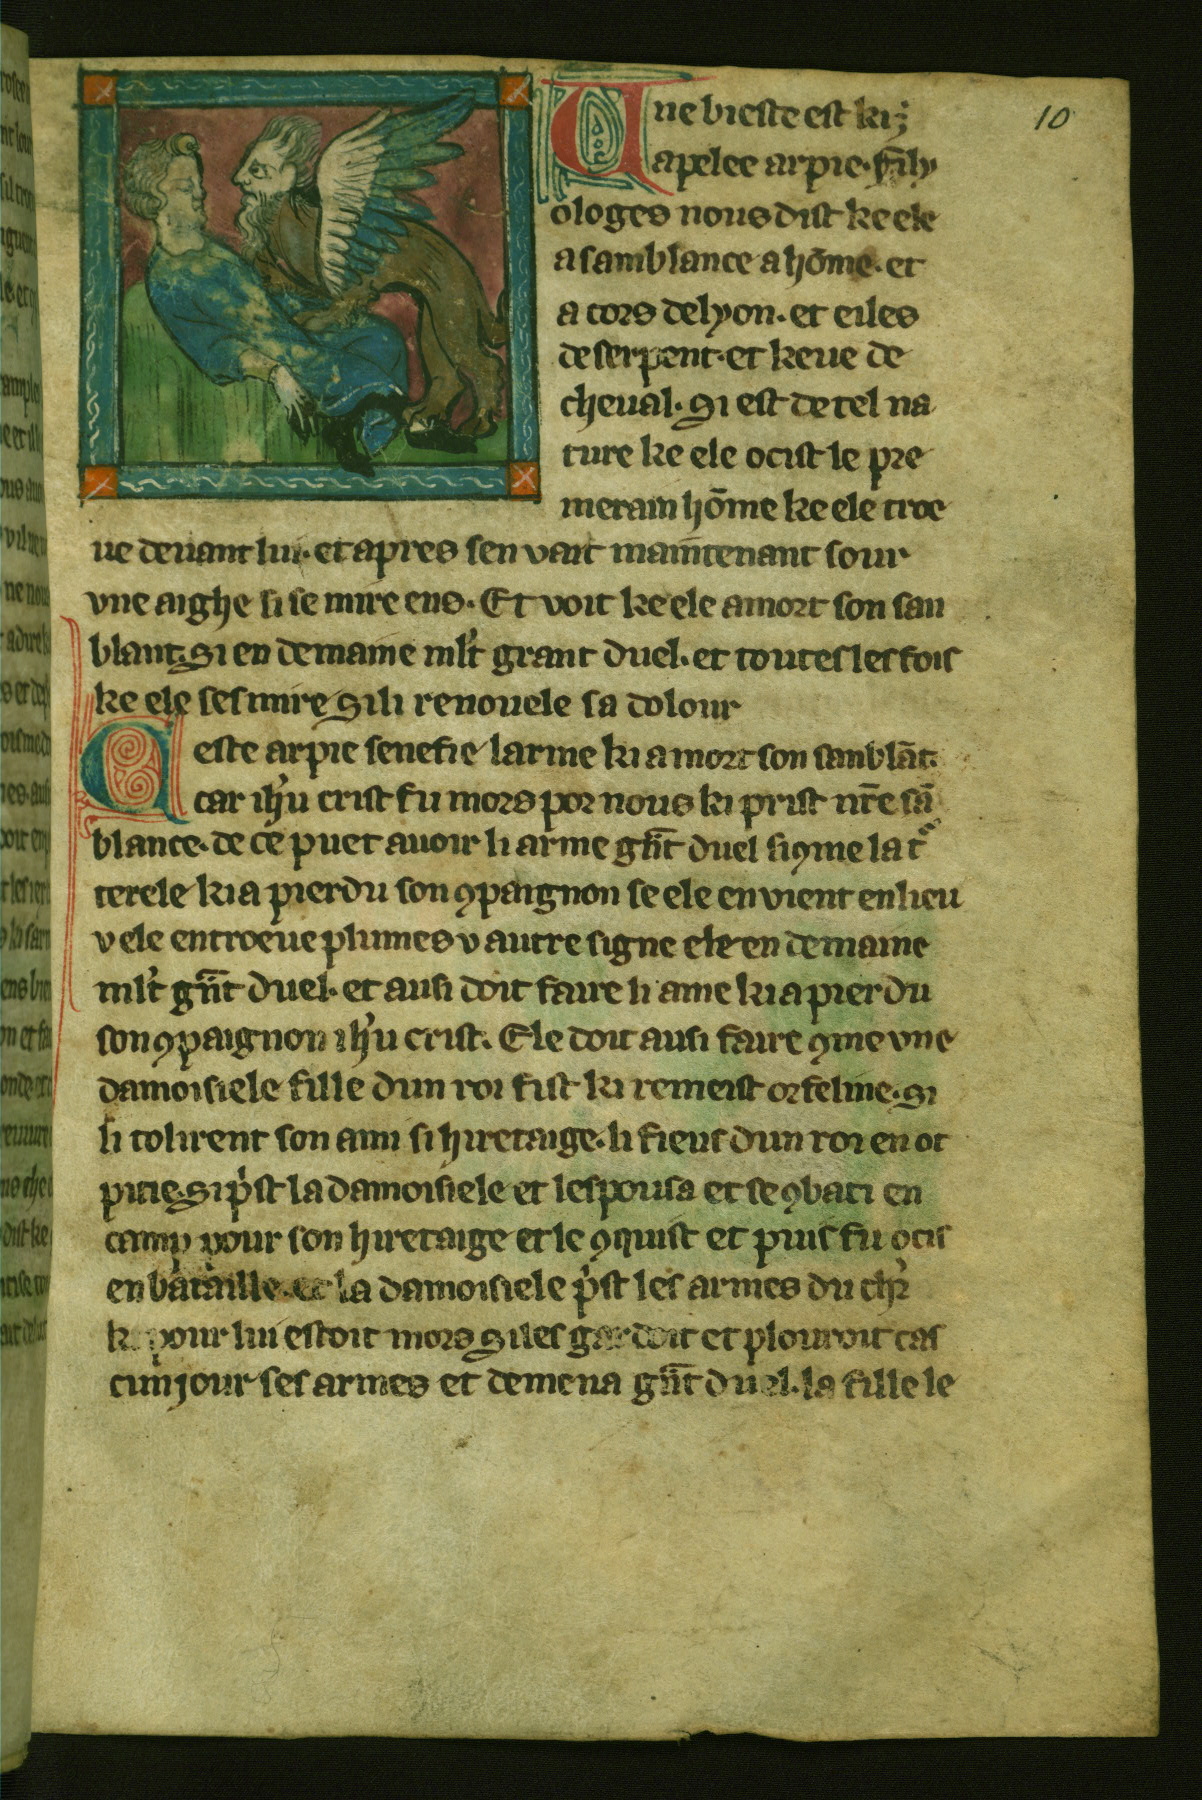 10
Une bieste est ki;
apelee arpie. fisily
ologes nous dist ke ele
a samblance a hōme. et
a cors de lyon. et eiles
de serpent. et keue de
cheual. Si est de tel na
ture ke ele ocist le pre
merain hōme ke ele troe
ue deuant lui. et apres sen vait maintenant sour
vne aighe si se mire ens. Et voit ke ele a mort son san
blant. Si en demaine mlt̄ grant duel. et toutes les fois
ke ele ses mire si li renouele sa dolour
Ceste arpie senefie larme ki a mort son sanblāt.
car ihū crist fu mors por nous ki prist nr̄e sā
blance. de ce puet auoir li arme gñt duel si ꝯme la t
terele ki a pierdu son ꝯpaignon se ele en vient en lieu
v ele en troeue plumes v autre signe ele en demaine
mlt̄ gñt duel. et ausi doit faire li ame ki a pierdu
son ꝯpaignon ihū crist. Ele doit ausi faire ꝯme vne
damoisiele fille dun roi fist ki remeist orfeline. Si
li tolirent son ami si hiretaige. li fieus dun roi en ot
pitie. Si p̄st la damoisiele et lespousa et se ꝯbati en
camp pour son hiretaige et le ꝯquist et puis fu ocis
en bataille. et la damoisiele p̄st les armes du chr̄
ki pour lui estoit mors si les gardoit et plouroit cas
cun jour ses armes et demena gñt duel. la fille le